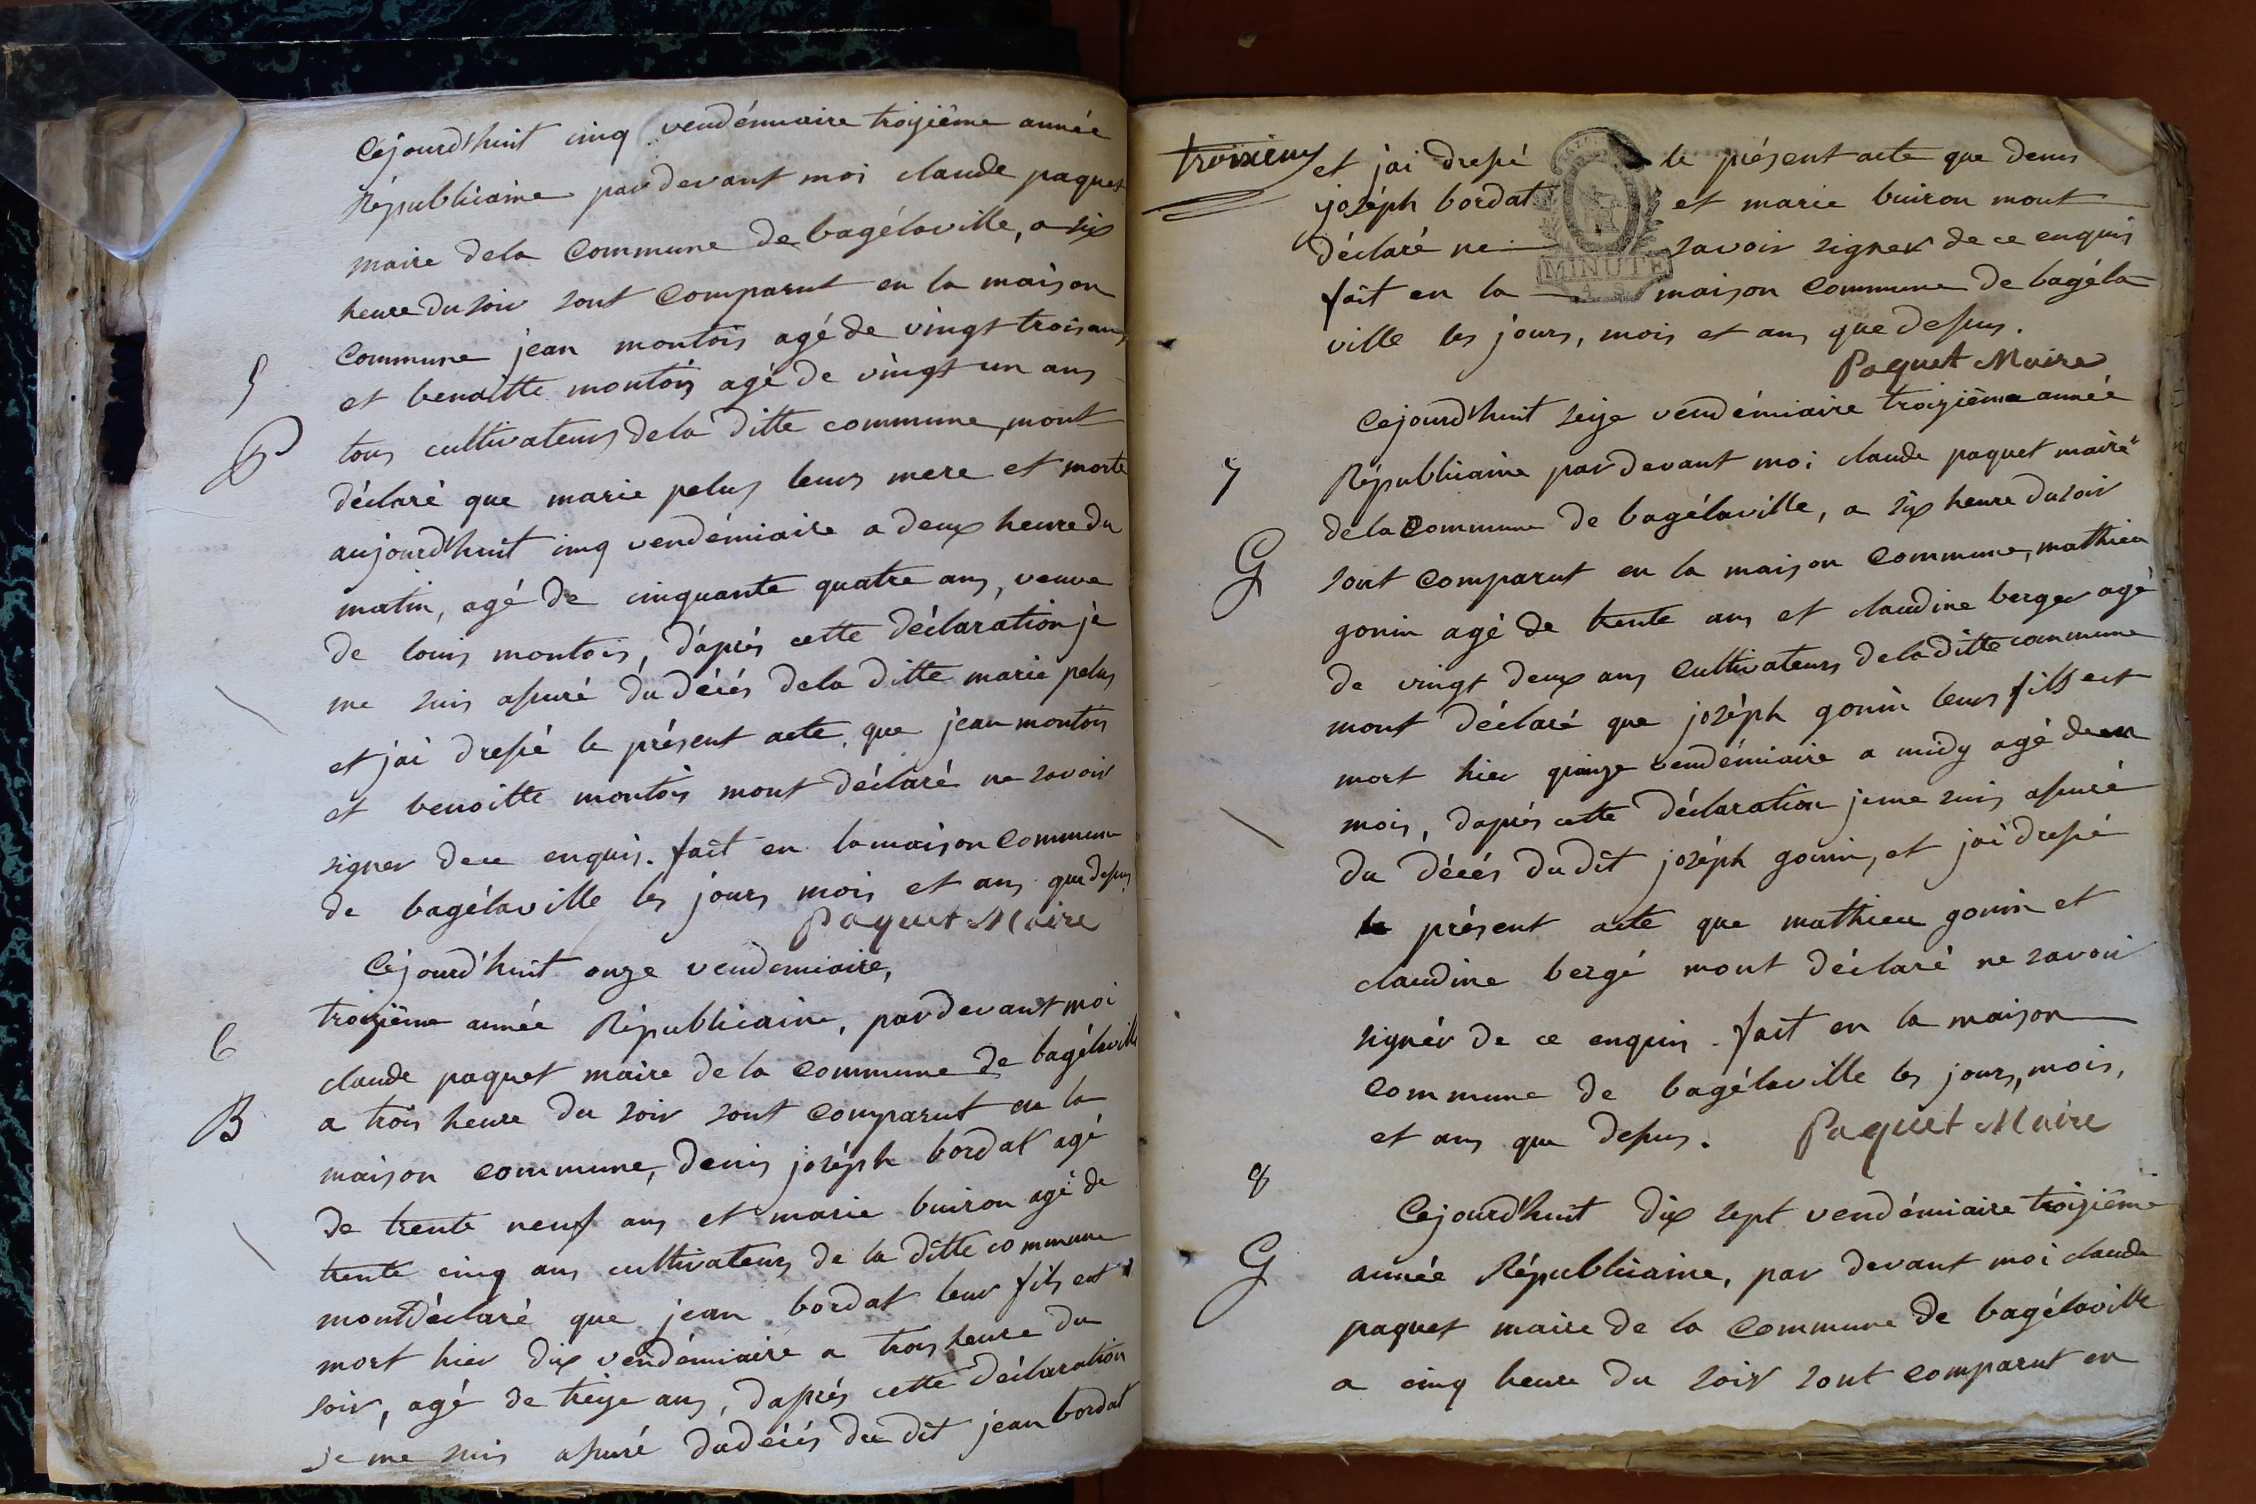 Cejourd'huit cinq vendémiaire troizième année
Républicaine pardevant moi claude paquet
maire dela Commune de bagélaville, a six
heure du soir sont Comparut en la maison
5
Commune jean montois agé de vingt trois ans
et benoitte montois agé de vingt un ans
P
tous cultivateurs dela ditte commune, mont
déclaré que marie pelus leurs mere et morte
aujourd'huit cinq vendémiaire a deux heure du
matin, agé de cinquante quatre ans, veuve
de louis montois, d'aprés cette déclaration je
me suis assuré du décés dela ditte marie pelus
et j'ai dressé le présent acte, que jean montois
et benoitte montois mont déclaré ne savoir
signer de ce enquis. fait en la maison Commune
de bagélaville les jours mois et ans que dessus
Paquet Maire
Cejourd'huit onze vendemiaire,
6
troizième année Républicaine, pardevant moi
claude paquet maire de la Commune de bagélaville
B
a trois heure du soir sont Comparut en la
maison commune, denis joséph bordat agé
de trente neuf ans et marie buiron agé de
trente cinq ans cultivateurs de la ditte commune
mont déclaré que jean bordat leur fils est
mort hier dix vendémiaire a trois heure du
soir, agé de treize ans, d'aprés cette déclaration
je me suis assuré du décés du dit jean bordat
troixieme
et j'ai dressé le présent acte que denis
joséph bordat et marie buiron mont
déclaré ne savoir signer de ce enquis
MINUTE
fait en la maison Commune de bagéla
ville les jours, mois et ans que dessus.
Paquet Maire
Cejourd'huit seize vendémiaire troizième année
7
Républicaine pardevant moi claude paquet maire
dela Commune de bagélaville, a six heure du soir
G
sont Comparut en la maison Commune, mathieu
gonin agé de trente ans et claudine berger agé
de vingt deux ans Cultivateurs dela ditte commune
mont déclaré que joséph gonin leurs fils est
mort hier quinze vendémiaire a midy agé de un
mois, d'aprés cette déclaration je me suis assuré
du décés du dit joséph gonin, et j'ai dressé
le présent acte que mathieu gonin et
claudine bergé mont déclaré ne savoir
signér de ce enquis. fait en la maison
Commune de bagélaville les jours, mois,
et ans que dessus. Paquet Maire
8
Cejourd'huit dix sept vendémiaire troizième
G
année Républicaine, par devant moi claude
paquet maire de la Commune de bagélaville
a cinq heure du soir sont Comparut en